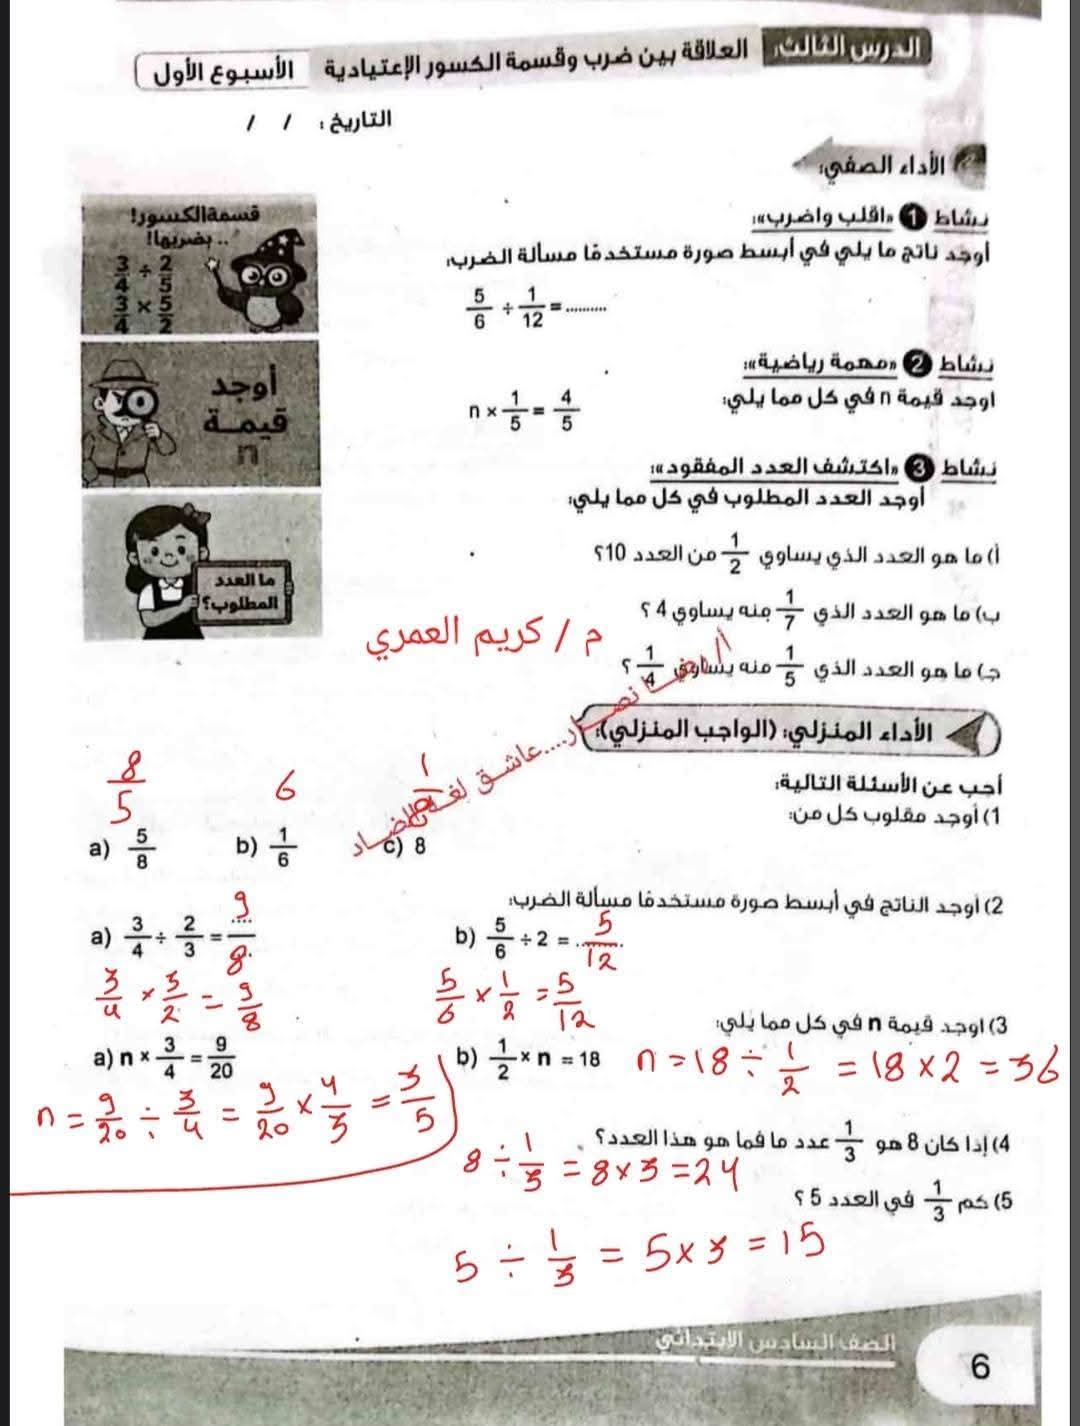 الدرس الثالث: العلاقة بين ضرب وقسمة الكسور الإعتيادية الأسبوع الأول
التاريخ: / /
الأداء الصفي:
نشاط 1 «اقلب واضرب»:
أوجد ناتج ما يلي في أبسط صورة مستخدمًا مسألة الضرب:
5/6 ÷ 1/12 = ..........
قسمة الكسور!
.. بضربها!
3/4 ÷ 2/5
3/4 × 5/2
نشاط 2 «مهمة رياضية»:
اوجد قيمة n في كل مما يلي:
n × 1/5 = 4/5
أوجد
قيمة
n
نشاط 3 «اكتشف العدد المفقود»:
أوجد العدد المطلوب في كل مما يلي:
أ) ما هو العدد الذي يساوي 1/2 من العدد 10؟
ب) ما هو العدد الذي 1/7 منه يساوي 4 ؟
جـ) ما هو العدد الذي 1/5 منه يساوي 1/4 ؟
ما العدد
المطلوب؟
م / كريم العمري
أ/ رضـا نصـار....عاشـق لغـة الضـاد
الأداء المنزلي: (الواجب المنزلي):
أجب عن الأسئلة التالية:
1) أوجد مقلوب كل من:
8/5 6 1/8
a) 5/8 b) 1/6 c) 8
2) أوجد الناتج في أبسط صورة مستخدمًا مسألة الضرب:
a) 3/4 ÷ 2/3 = 9/8 b) 5/6 ÷ 2 = 5/12
3/4 × 3/2 = 9/8 5/6 × 1/2 = 5/12
3) اوجد قيمة n في كل مما يلي:
a) n × 3/4 = 9/20 b) 1/2 × n = 18 n = 18 ÷ 1/2 = 18 × 2 = 36
n = 9/20 ÷ 3/4 = 9/20 × 4/3 = 3/5
4) إذا كان 8 هو 1/3 عدد ما فما هو هذا العدد؟
8 ÷ 1/3 = 8 × 3 = 24
5) كم 1/3 في العدد 5 ؟
5 ÷ 1/3 = 5 × 3 = 15
الصف السادس الابتدائي
6